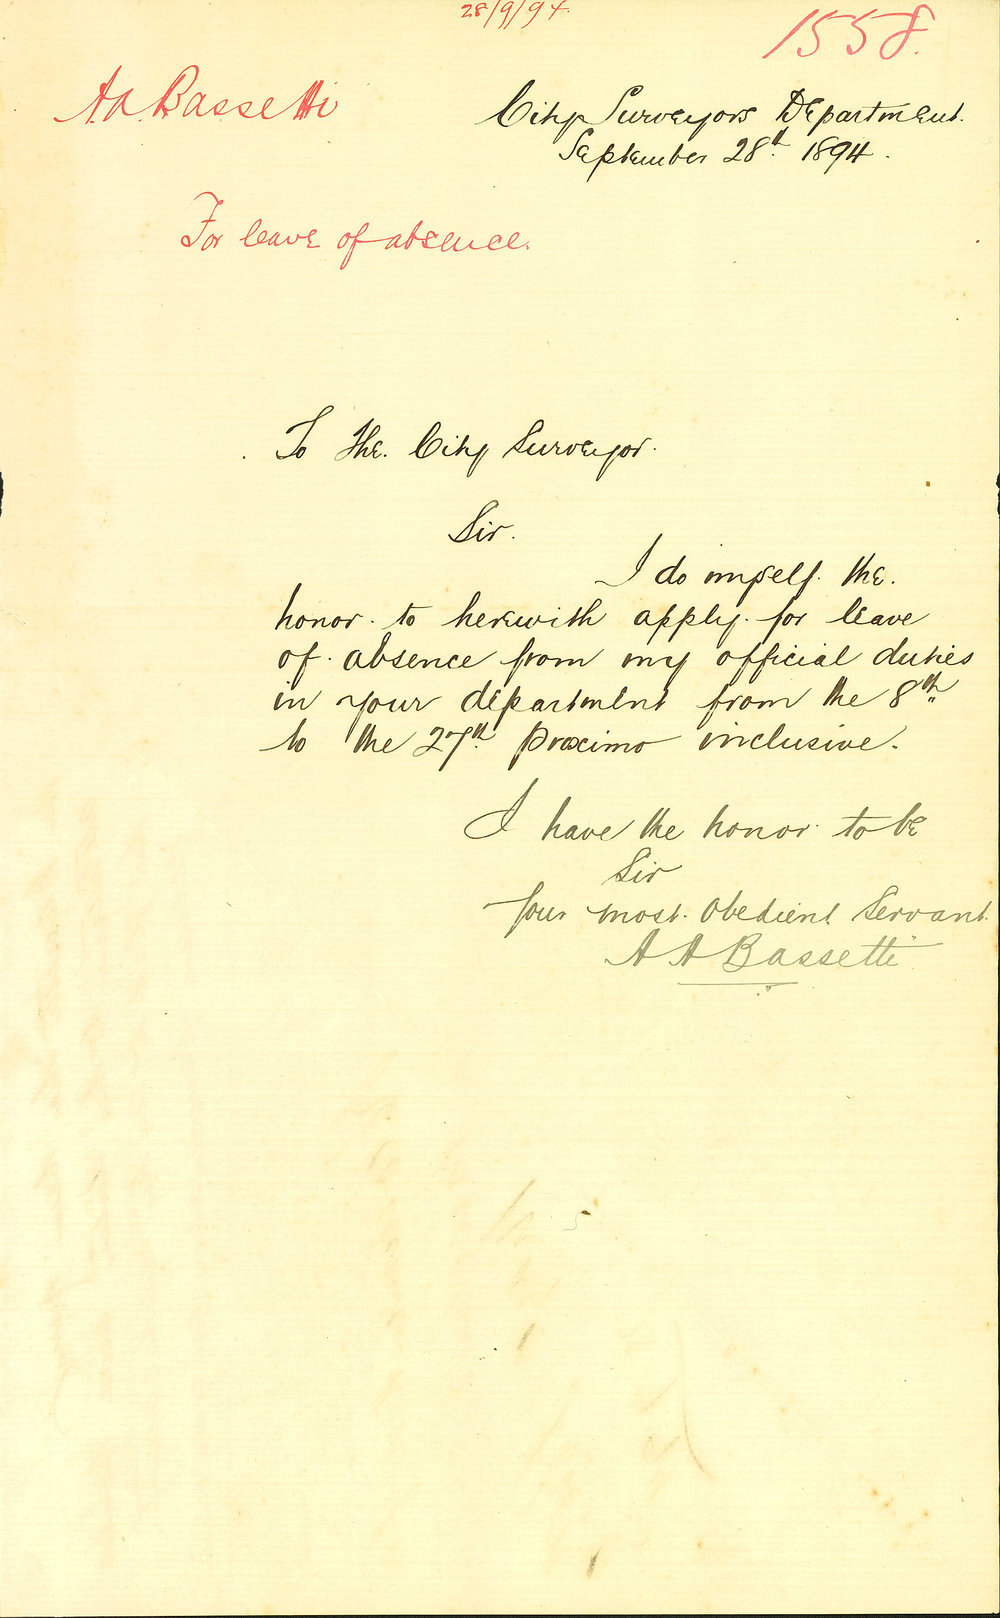 28/9/94.
1558.
A.A. Bassetti
City Surveyors Department.
September 28th. 1894.
For leave of absence.
To The. City Surveyor.
Sir.
I do myself. the.
honor. to herewith apply. for leave
of. absence from my official duties
in your department from the 8th
to the 27th. proximo inclusive.
I have the honor. to be
Sir
Your most. Obedient Servant.
A A Bassetti